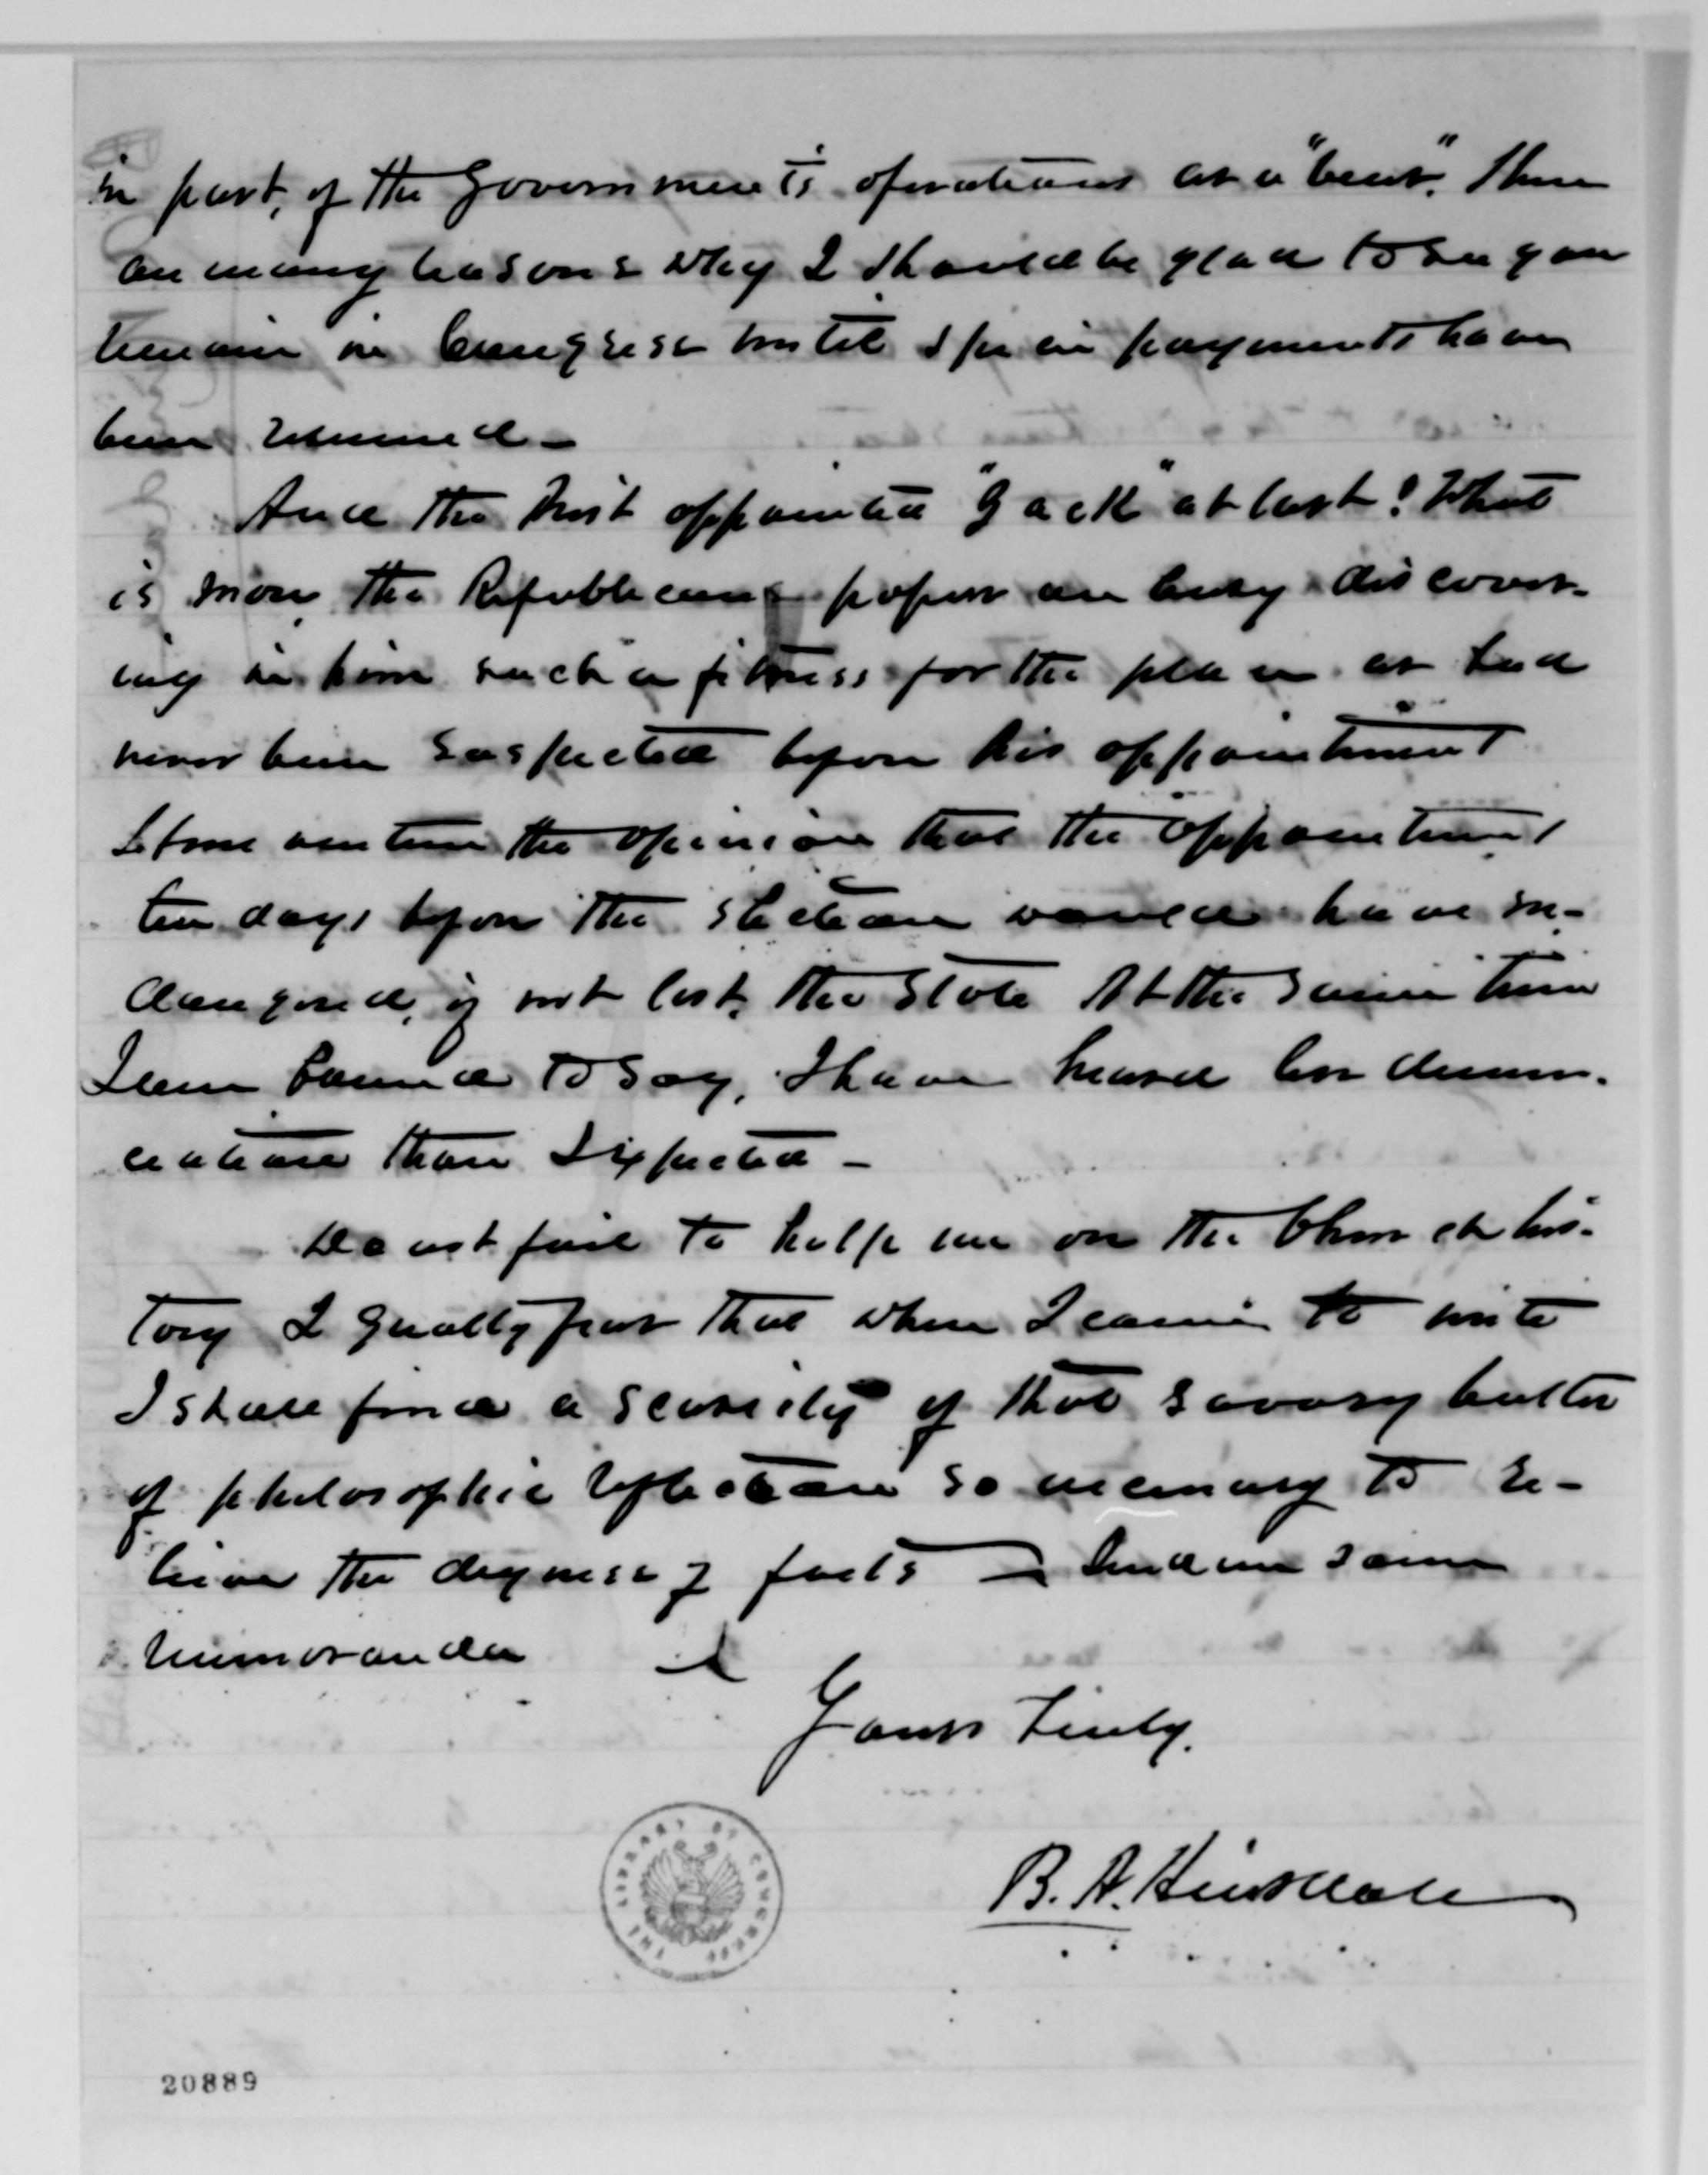 in part, of the Government's operations as a "bear". There
are many reasons why I should be glad to see you
remain in Congress until specie payments have
been resumed —
And the Prest appointed "Jack" at last! What
is more, the Republican papers are busy discover-
ing in him such a fitness for the place as had
never been suspected before his appointment
Let me venture the opinion that the appointment
ten days before the election would have en-
dangered, if not lost, the State At the same time
I am bound to say, I have heard less denun-
ciation than I expected —
Do not fail to help me on the Church his-
tory I greatly fear that when I come to write
I shall find a scarcity of that savory butter
of philosophic reflection so necessary to re-
lieve the dryness of facts — Send me some
memoranda
Yours truly,
B. A. Hinsdale
THE LIBRARY OF CONGRESS
20889